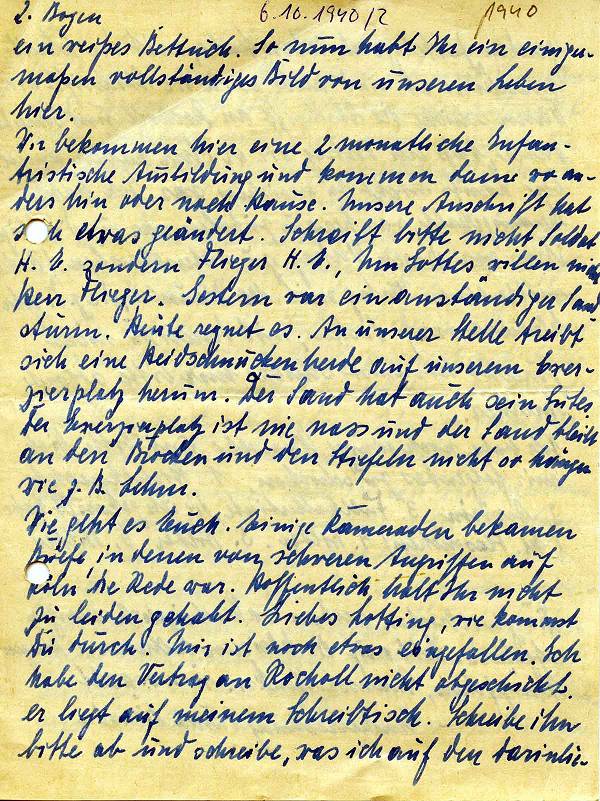 2. Bogen 6.10.1940/2 1940
ein weißes Bettuch. So nun habt Ihr ein einiger-
maßen vollständiges Bild von unseren Leben
hier.
Wir bekommen hier eine 2 monatliche Infan-
tristische Ausbildung und kommen dann wo an-
ders hin oder nach Hause. Unsere Anschrift hat
sich etwas geändert. Schreibt bitte nicht Soldat
H. V. sondern Flieger H. V., um Gottes willen nicht
Herr Flieger. Gestern war ein anständiger Sand
sturm. Heute regnet es. An unserer Stelle treibt
sich eine Heidschnuckenherde auf unserem Exer-
zierplatz herum. Der Sand hat auch sein Gutes
Der Exerzierplatz ist nie nass und der Sand bleibt
an den Brocken und den Stiefeln nicht so hängen
wie z. B. Lehm.
Wie geht es Euch. Einige Kameraden bekamen
Briefe, in denen von schweren Angriffen auf
Köln die Rede war. Hoffentlich habt Ihr nicht
zu leiden gehabt. Liebes Lotting, wie kommst
Du durch. Mir ist noch etwas eingefallen. Ich
habe den Vertrag an Rocholl nicht abgeschickt.
er liegt auf meinem Schreibtisch. Schreibe ihn
bitte ab und schreibe, was ich auf den darinlie-